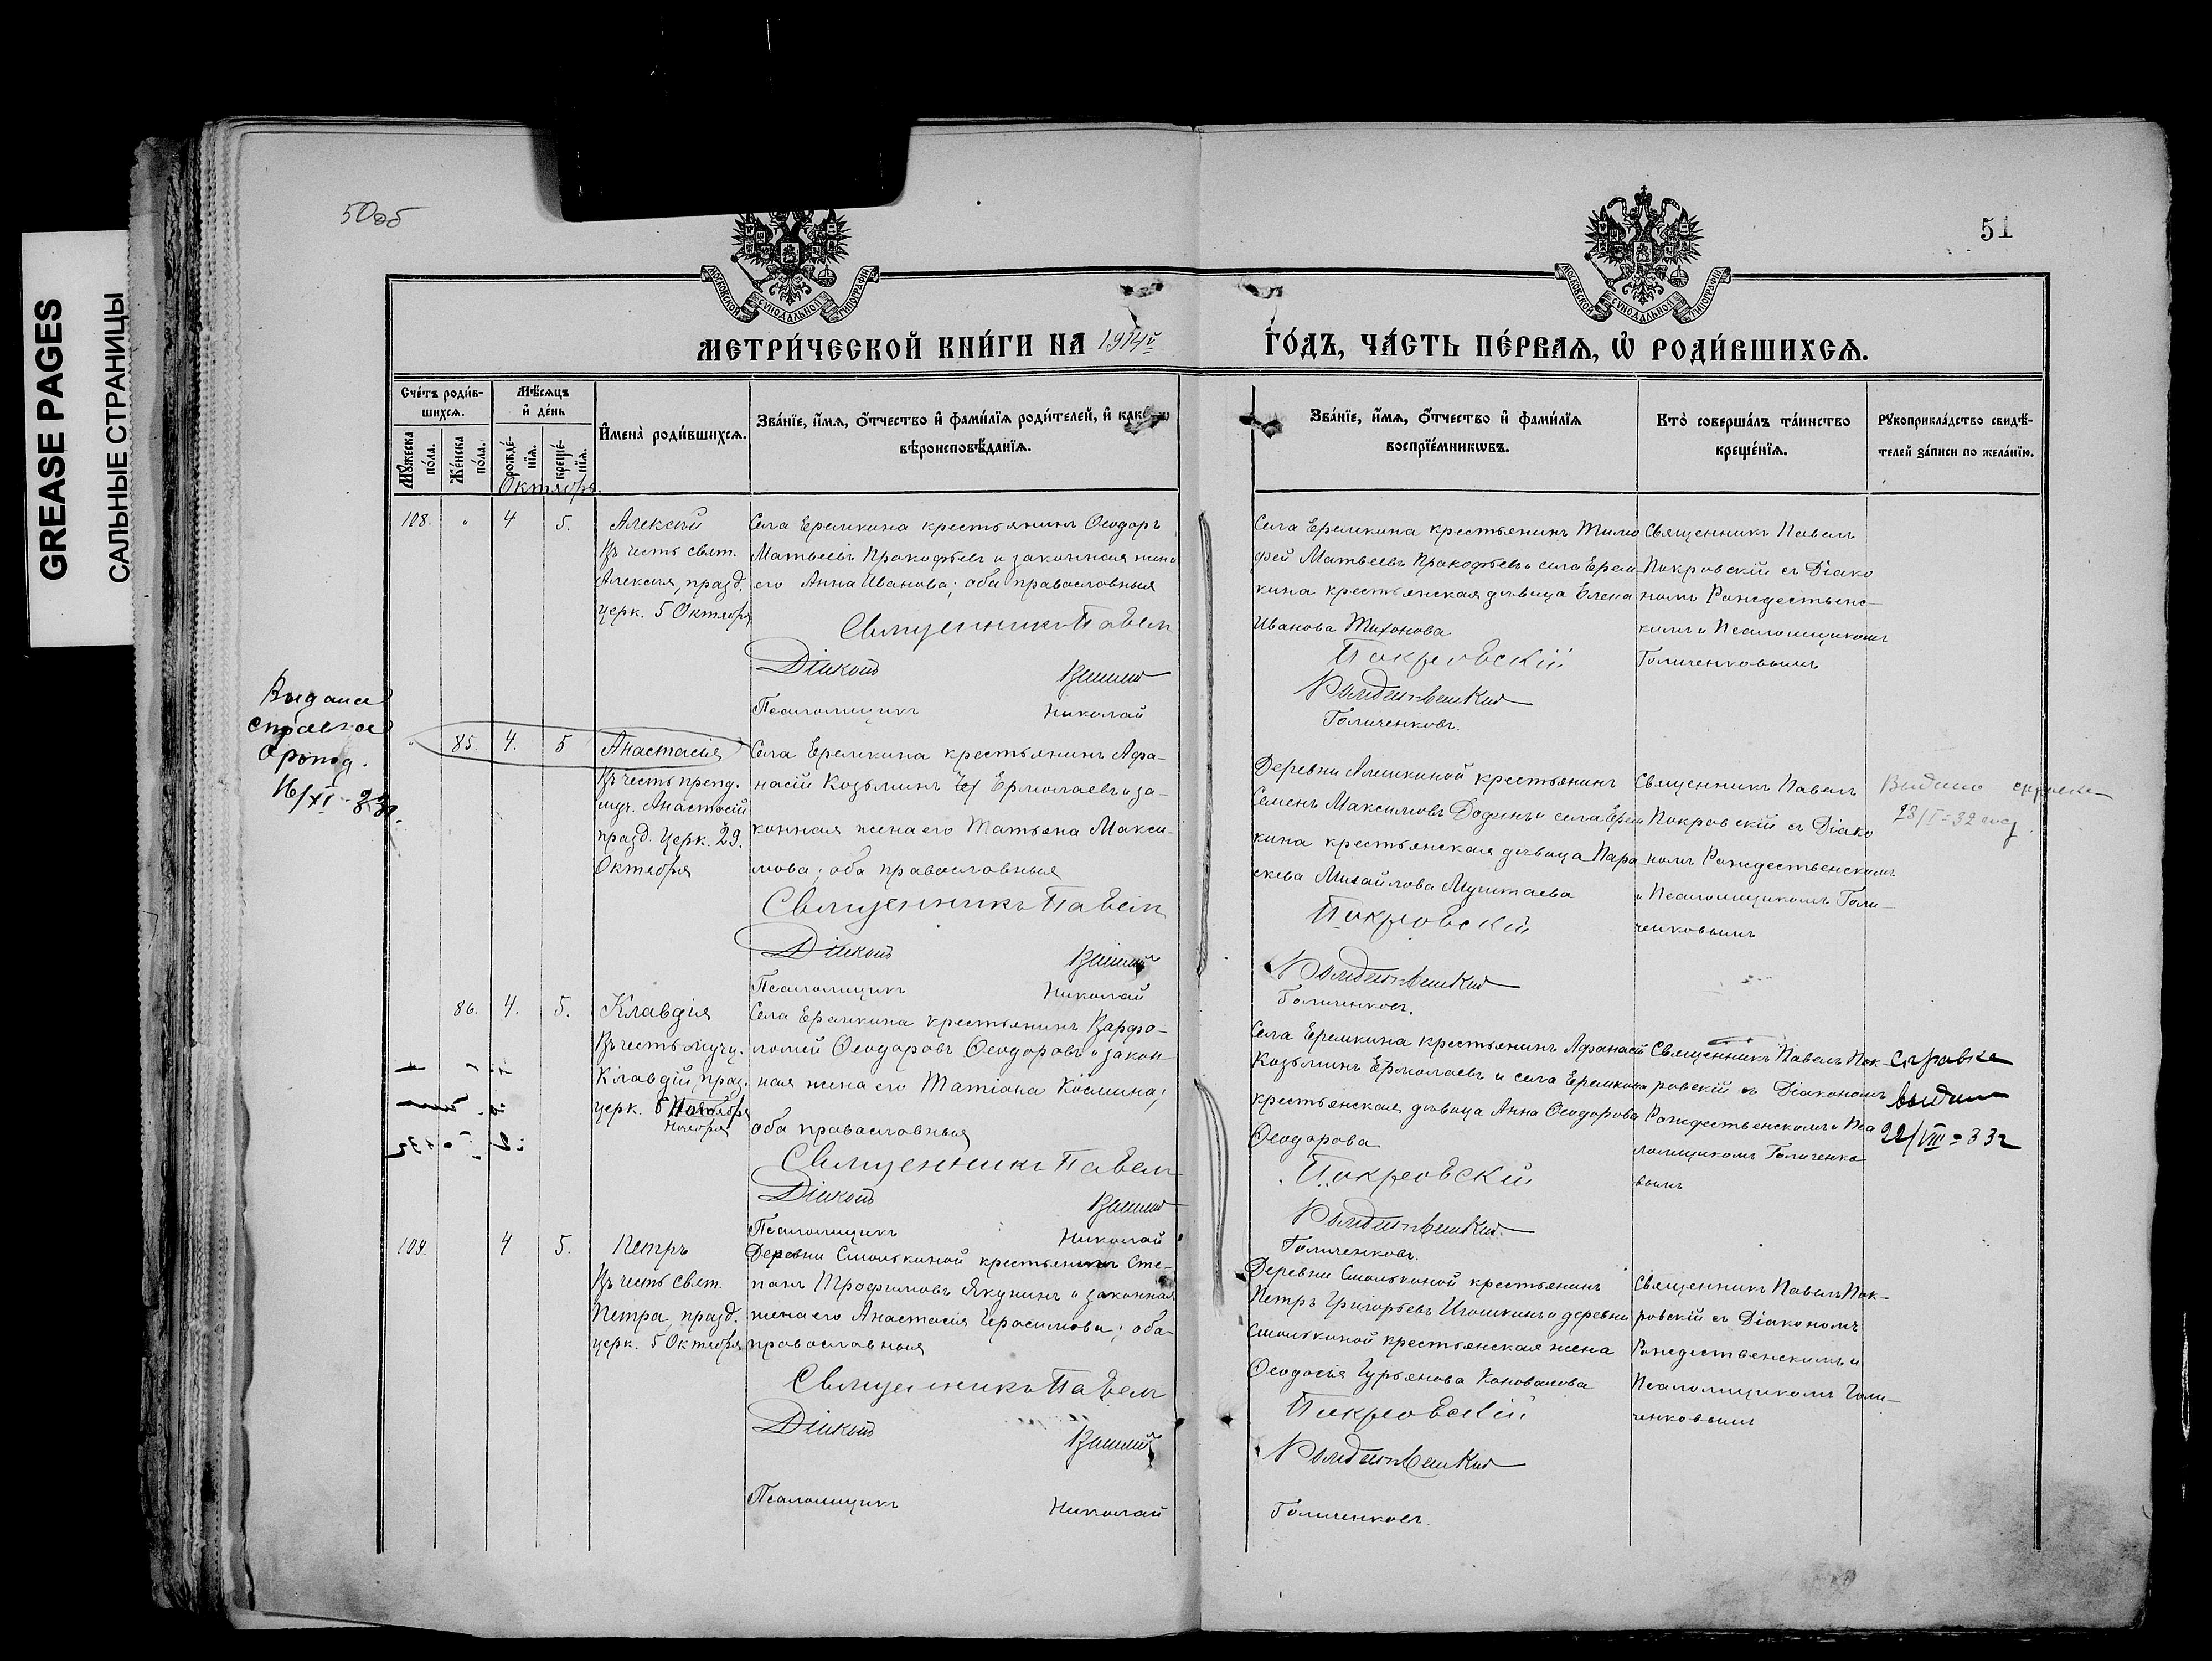 GREASE PAGES
САЛЬНЫЕ СТРАНИЦЫ
50об
51
МОСКОВСКОЙ СѴНОДАЛЬНОЙ ТИПОГРАФІИ
МОСКОВСКОЙ СѴНОДАЛЬНОЙ ТИПОГРАФІИ
МЕТРИ́ЧЕСКОЙ КНИ́ГИ НА 1914й
ГО́ДЪ, ЧА́СТЬ ПЕ́РВАѦ, Ѡ РОДИ́ВШИХСѦ.
Сче́тъ роди́в-
шихсѧ.
Мѣ́сѧцъ
и де́нь
Мꙋ́жеска
по́ла.
Же́нска
по́ла.
рожде́-
нїѧ.
креще́-
нїѧ.
Октябрь.
Имена̀ роди́вшихсѧ.
Зва́нїе, и́мѧ, о́тчество и фами́лїѧ роди́телей, и како́гѡ
вѣроисповѣ́данїѧ.
Зва́нїе, и́мѧ, о́тчество и фами́лїѧ
воспрїе́мникѡвъ.
Кто̀ соверша́лъ та́инство
креще́нїѧ.
Рꙋкоприкла́дство свидѣ́-
телей за́писи по жела́нїю.
108. " 4 5. Алексѣй
Въ честь свят.
Алексія, празд.
церк. 5 Октября
Села Еремкина крестьянинъ Ѳеодоръ
Матвеевъ Прокофьевъ и законная жена
его Анна Иванова; оба православныя
Священникъ Павелъ
Діаконъ Василій
Псаломщикъ Николай
Села Еремкина крестьянинъ Тимо
фей Матвеевъ Прокофьевъ и села Ерем
кина крестьянская дѣвица Елена
Иванова Тихонова
Покровскій
Рождественскій
Голиченковъ.
Священникъ Павелъ
Покровскій съ Діако
номъ Рождественс-
кимъ и Псаломщикомъ
Голиченковымъ
Выдана
справка
о рожд.
16/XI-33г.
" 85. 4. 5 Анастасія
Въ честь препд.
муч. Анастасіи
празд. церк. 29.
Октября
Села Еремкина крестьянинъ Афа-
насій Козьминъ Ермолаевъ и за-
конная жена его Татьяна Макси-
мова; оба православныя
Священникъ Павелъ
Діаконъ Василій
Псаломщикъ Николай
крестьянинъ
Семенъ Максимовъ Додинъ и села Ерем
кина крестьянская дѣвица Пара
скева Михайлова
Покровскій
Рождественскій
Голиченковъ.
Священникъ Павелъ
Покровскій съ Діако
номъ Рождественскимъ
и Псаломщикомъ Голи-
ченковымъ
Выдана справка
28/I-32 год.
86. 4. 5. Клавдія
Въ честь мучц.
Клавдіи, праз.
церк. 6
Ноября
Села Еремкина крестьянинъ Варфо-
ломей Ѳеодоровъ Ѳеодоровъ и закон
ная жена его Татіана Космина;
оба православныя
Священникъ Павелъ
Діаконъ Василій
Псаломщикъ Николай
Села Еремкина крестьянинъ Афанасій
Козьминъ Ермолаевъ и села Еремкина
крестьянская дѣвица Анна Ѳеодорова
Ѳеодорова
Покровскій
Рождественскій
Голиченковъ.
Священникъ Павелъ Пок-
ровскій съ Діакономъ
Рождественскимъ и Пса
ломщикомъ Голиченко
вымъ
Справка
выдана
22/VIII-33г
109. 4 5. Петръ
Въ честь свят.
Петра, празд.
церк. 5 Октября
Деревни Смолькиной крестьянинъ Сте-
панъ Трофимовъ Якунинъ и законная
жена его Анастасія Герасимова; оба
православныя
Священникъ Павелъ
Діаконъ Василій
Псаломщикъ Николай
Деревни Смолькиной крестьянинъ
Петръ Григорьевъ Игошкинъ и деревни
Смолькиной крестьянская жена
Ѳеодосья Гурьянова Коновалова
Покровскій
Рождественскій
Голиченковъ.
Священникъ Павелъ Пок-
ровскій съ Діакономъ
Рождественскимъ и
Псаломщикомъ Голи-
ченковымъ